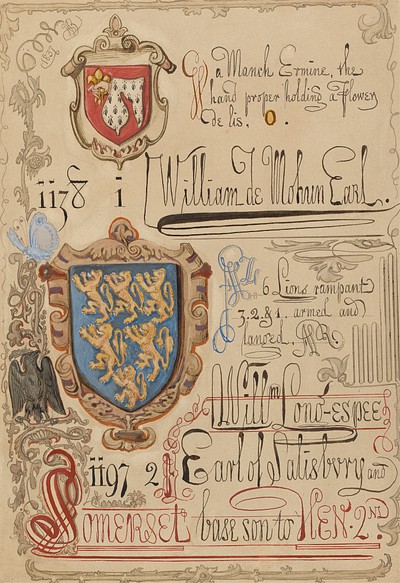 G a Manch Ermine, the
hand proper holding a Flower
De lis, O.
1138 1 William de Mohun Earl.
Az 6 Lions rampant
3.2.&1. armed and
langed,
Willm Long-espee
1197 2 Earl of Salisbury and
SOMERSET base son to HEN. 2ND